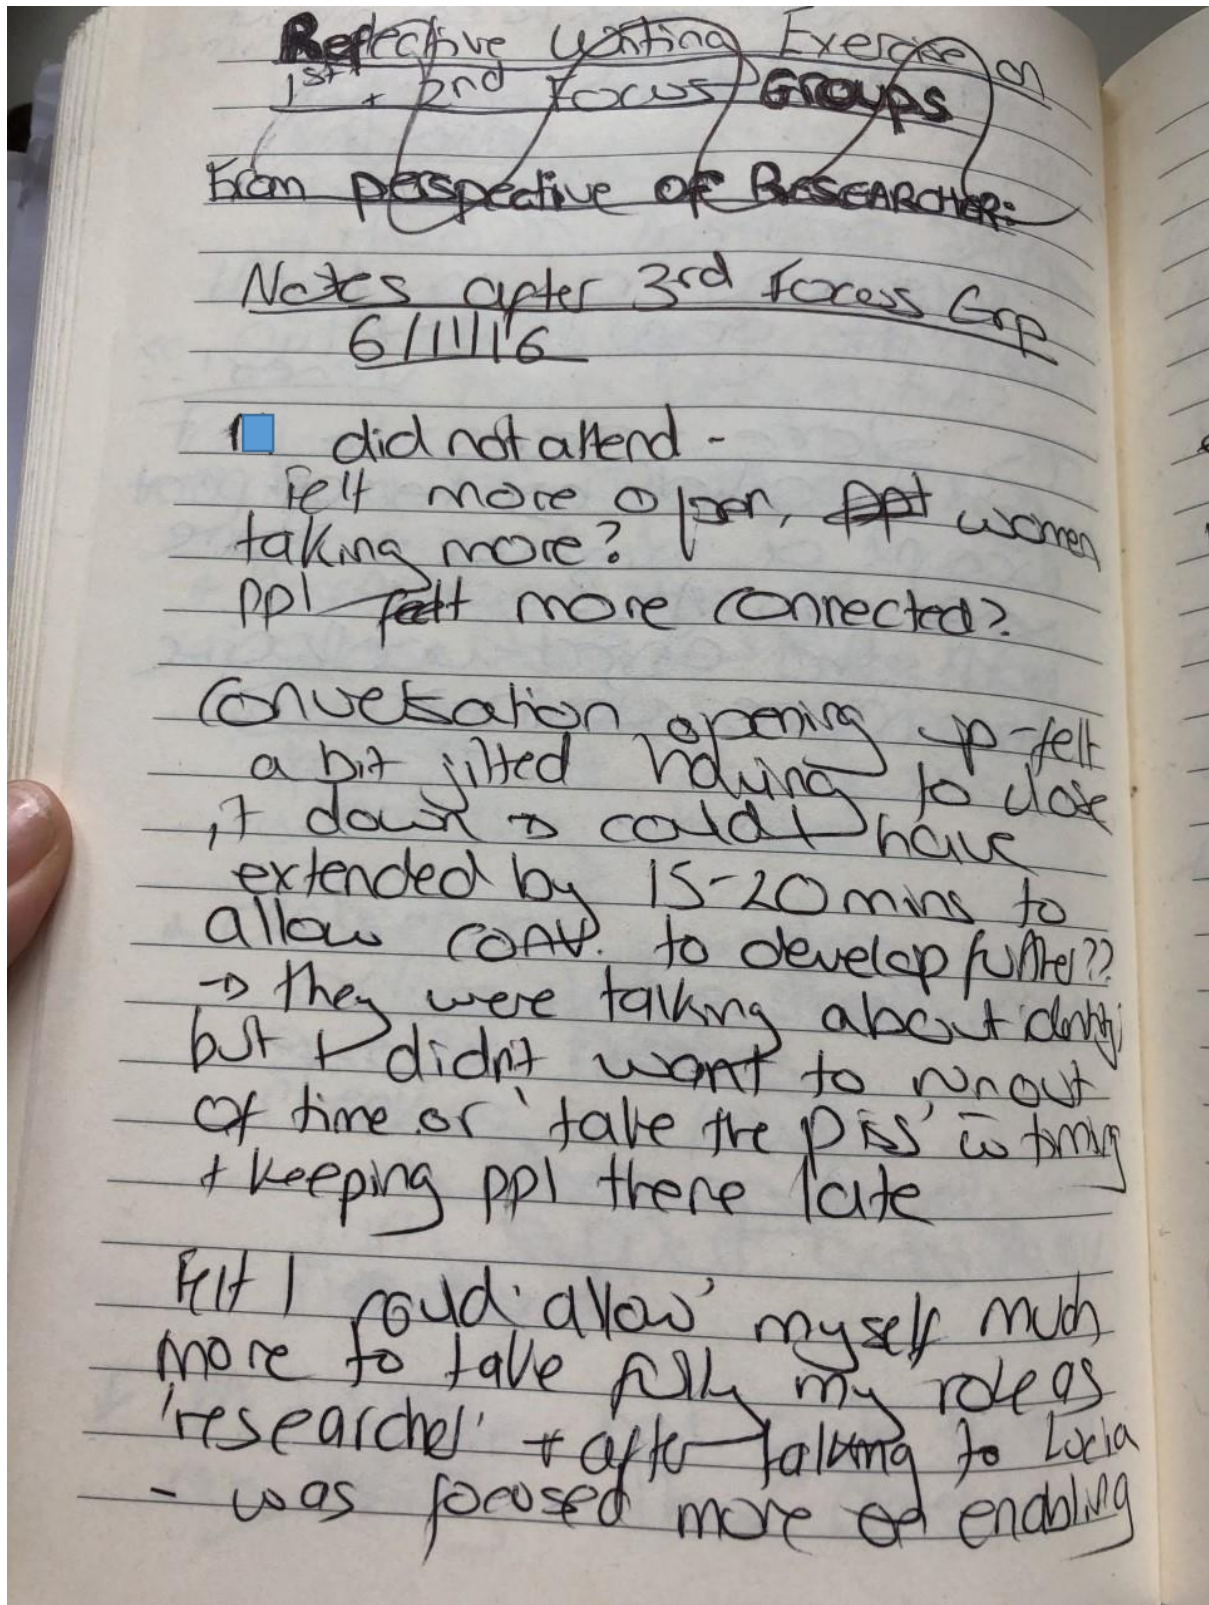 Reflective Writing Exercise on
1st + 2nd Focus GROUPS
From perspective of RESEARCHER:
Notes after 3rd Focuss Grp
6/11/16
did not attend -
Felt more open, ppt women
talking more?
ppl felt more connected?
Conversation opening up - felt
a bit jilted having to close
it down → could have
extended by 15-20 mins to
allow conv. to develop further??
→ they were talking about identity
but I didn't want to run out
of time or 'take the piss' w timing
+ keeping ppl there late
Felt I could 'allow' myself much
more to take fully my role as
'researcher' + after talking to Lucia
- was focused more on enabling